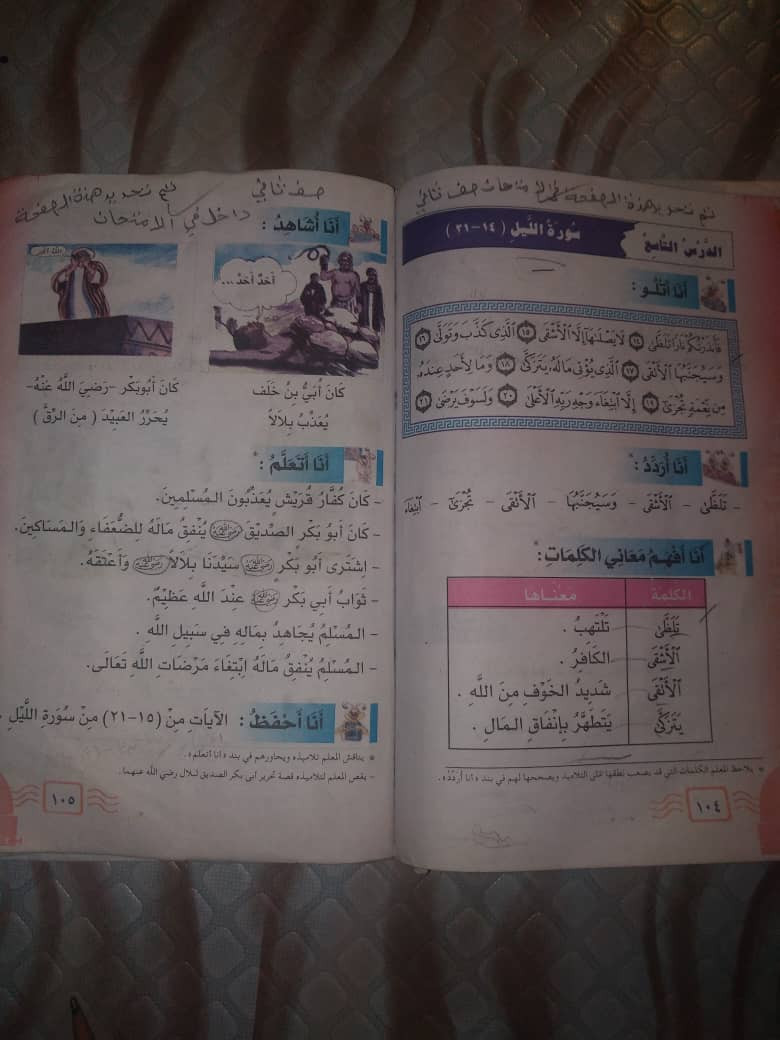 تم تحديد هذة الصفحة صف ثاني
الدَّرْسُ التَّاسِعُ
سُورَةُ اللَّيلِ (١٤-٢١)
أَنَا أَتْلُو :
فَأَنذَرْتُكُمْ نَارًا تَلَظَّىٰ ١٤ لَا يَصْلَىٰهَآ إِلَّا ٱلْأَشْقَى ١٥ ٱلَّذِى كَذَّبَ وَتَوَلَّىٰ ١٦
وَسَيُجَنَّبُهَا ٱلْأَتْقَى ١٧ ٱلَّذِى يُؤْتِى مَالَهُۥ يَتَزَكَّىٰ ١٨ وَمَا لِأَحَدٍ عِندَهُۥ
مِن نِّعْمَةٍ تُجْزَىٰٓ ١٩ إِلَّا ٱبْتِغَآءَ وَجْهِ رَبِّهِ ٱلْأَعْلَىٰ ٢٠ وَلَسَوْفَ يَرْضَىٰ ٢١
أَنَا أُرَدِّدُ :*
- تَلَظَّىٰ - ٱلْأَشْقَى - وَسَيُجَنَّبُهَا - ٱلْأَتْقَى - تُجْزَىٰٓ - ٱبْتِغَآءَ
أَنَا أَفْهَمُ مَعَانِي الكَلِمَاتِ :*
الكلمة مَعْنَاها
تَلَظَّىٰ تَلْتَهِبُ .
ٱلْأَشْقَى الكَافِرُ .
ٱلْأَتْقَى شَدِيدُ الخَوْفِ مِنَ اللَّهِ .
يَتَزَكَّىٰ يَتَطَهَّرُ بِإِنْفَاقِ المَالِ .
* يلاحظ المعلم الكلمات التي قد يصعب نطقها على التلاميذ ويصححها لهم في بند « أنا أُرَدِّدُ » .
١٠٤
صف ثاني تم تحديد هذة الصفحة
داخل في الامتحان
أَنَا أُشَاهِدُ :
أَحَدٌ أَحَدٌ ...
كَانَ أُبَيُّ بنُ خَلَف
يُعَذِّبُ بِلَالاً
كَانَ أَبُوبَكْر -رَضِيَ اللَّهُ عَنْهُ-
يُحَرِّرُ العَبِيْدَ ( مِنَ الرِّقِّ )
أَنَا أَتَعَلَّمُ :*
- كَانَ كُفَّارُ قُرَيْشٍ يُعَذِّبُونَ المُسْلِمِينَ.
- كَانَ أَبُو بَكْر الصِّدِّيْقَ رضي الله عنه يُنْفِقُ مَالَهُ لِلضُّعَفَاءِ وَالمَسَاكِينَ.
- اِشْتَرَى أَبُو بَكْرٍ رضي الله عنه سَيِّدَنَا بِلَالاً رضي الله عنه وَأَعْتَقَهُ.
- ثَوَابُ أَبِي بَكْرٍ رضي الله عنه عِنْدَ اللَّهِ عَظِيْمٌ.
- المُسْلِمُ يُجَاهِدُ بِمَالِهِ فِي سَبِيلِ اللَّهِ .
- المُسْلِمُ يُنْفِقُ مَالَهُ اِبْتِغَاءَ مَرْضَاتِ اللَّهِ تَعَالَى.
أَنَا أَحْفَظُ : الآيَاتِ مِنْ (١٥-٢١) مِنْ سُورَةِ اللَّيْلِ .
* يناقش المعلم تلاميذه ويحاورهم في بند « أنا أتعلم ».
- يقص المعلم لتلاميذه قصة تحرير أبي بكر الصديق لبلال رضي الله عنهما.
١٠٥